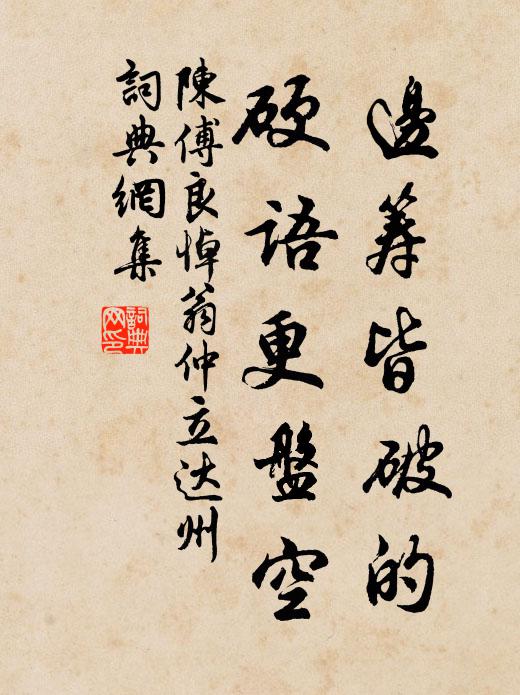 邊筹皆破的
硬语更盤空
陳傅良悼翁仲立达州
詞典網集
詞典
网印